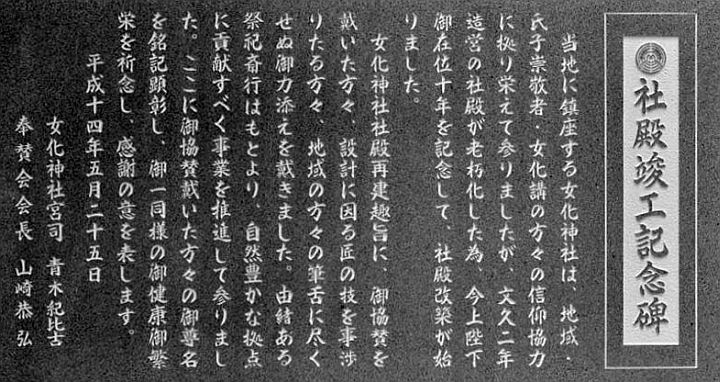 社殿竣工記念碑
当地に鎮座する女化神社は、地域・
氏子崇敬者・女化講の方々の信仰協力
に拠り栄えて参りましたが、文久二年
造営の社殿が老朽化した為、今上陛下
御在位十年を記念して、社殿改築が始
りました。
女化神社社殿再建趣旨に、御協賛を
戴いた方々、設計に因る匠の技を事渉
りたる方々、地域の方々の筆舌に尽く
せぬ御力添えを戴きました。由緒ある
祭祀斎行はもとより、自然豊かな拠点
に貢献すべく事業を推進して参りまし
た。ここに御協賛戴いた方々の御尊名
を銘記顕彰し、御一同様の御健康御繁
栄を祈念し、感謝の意を表します。
平成十四年五月二十五日
女化神社宮司 青木紀比古
奉賛会会長 山崎恭弘